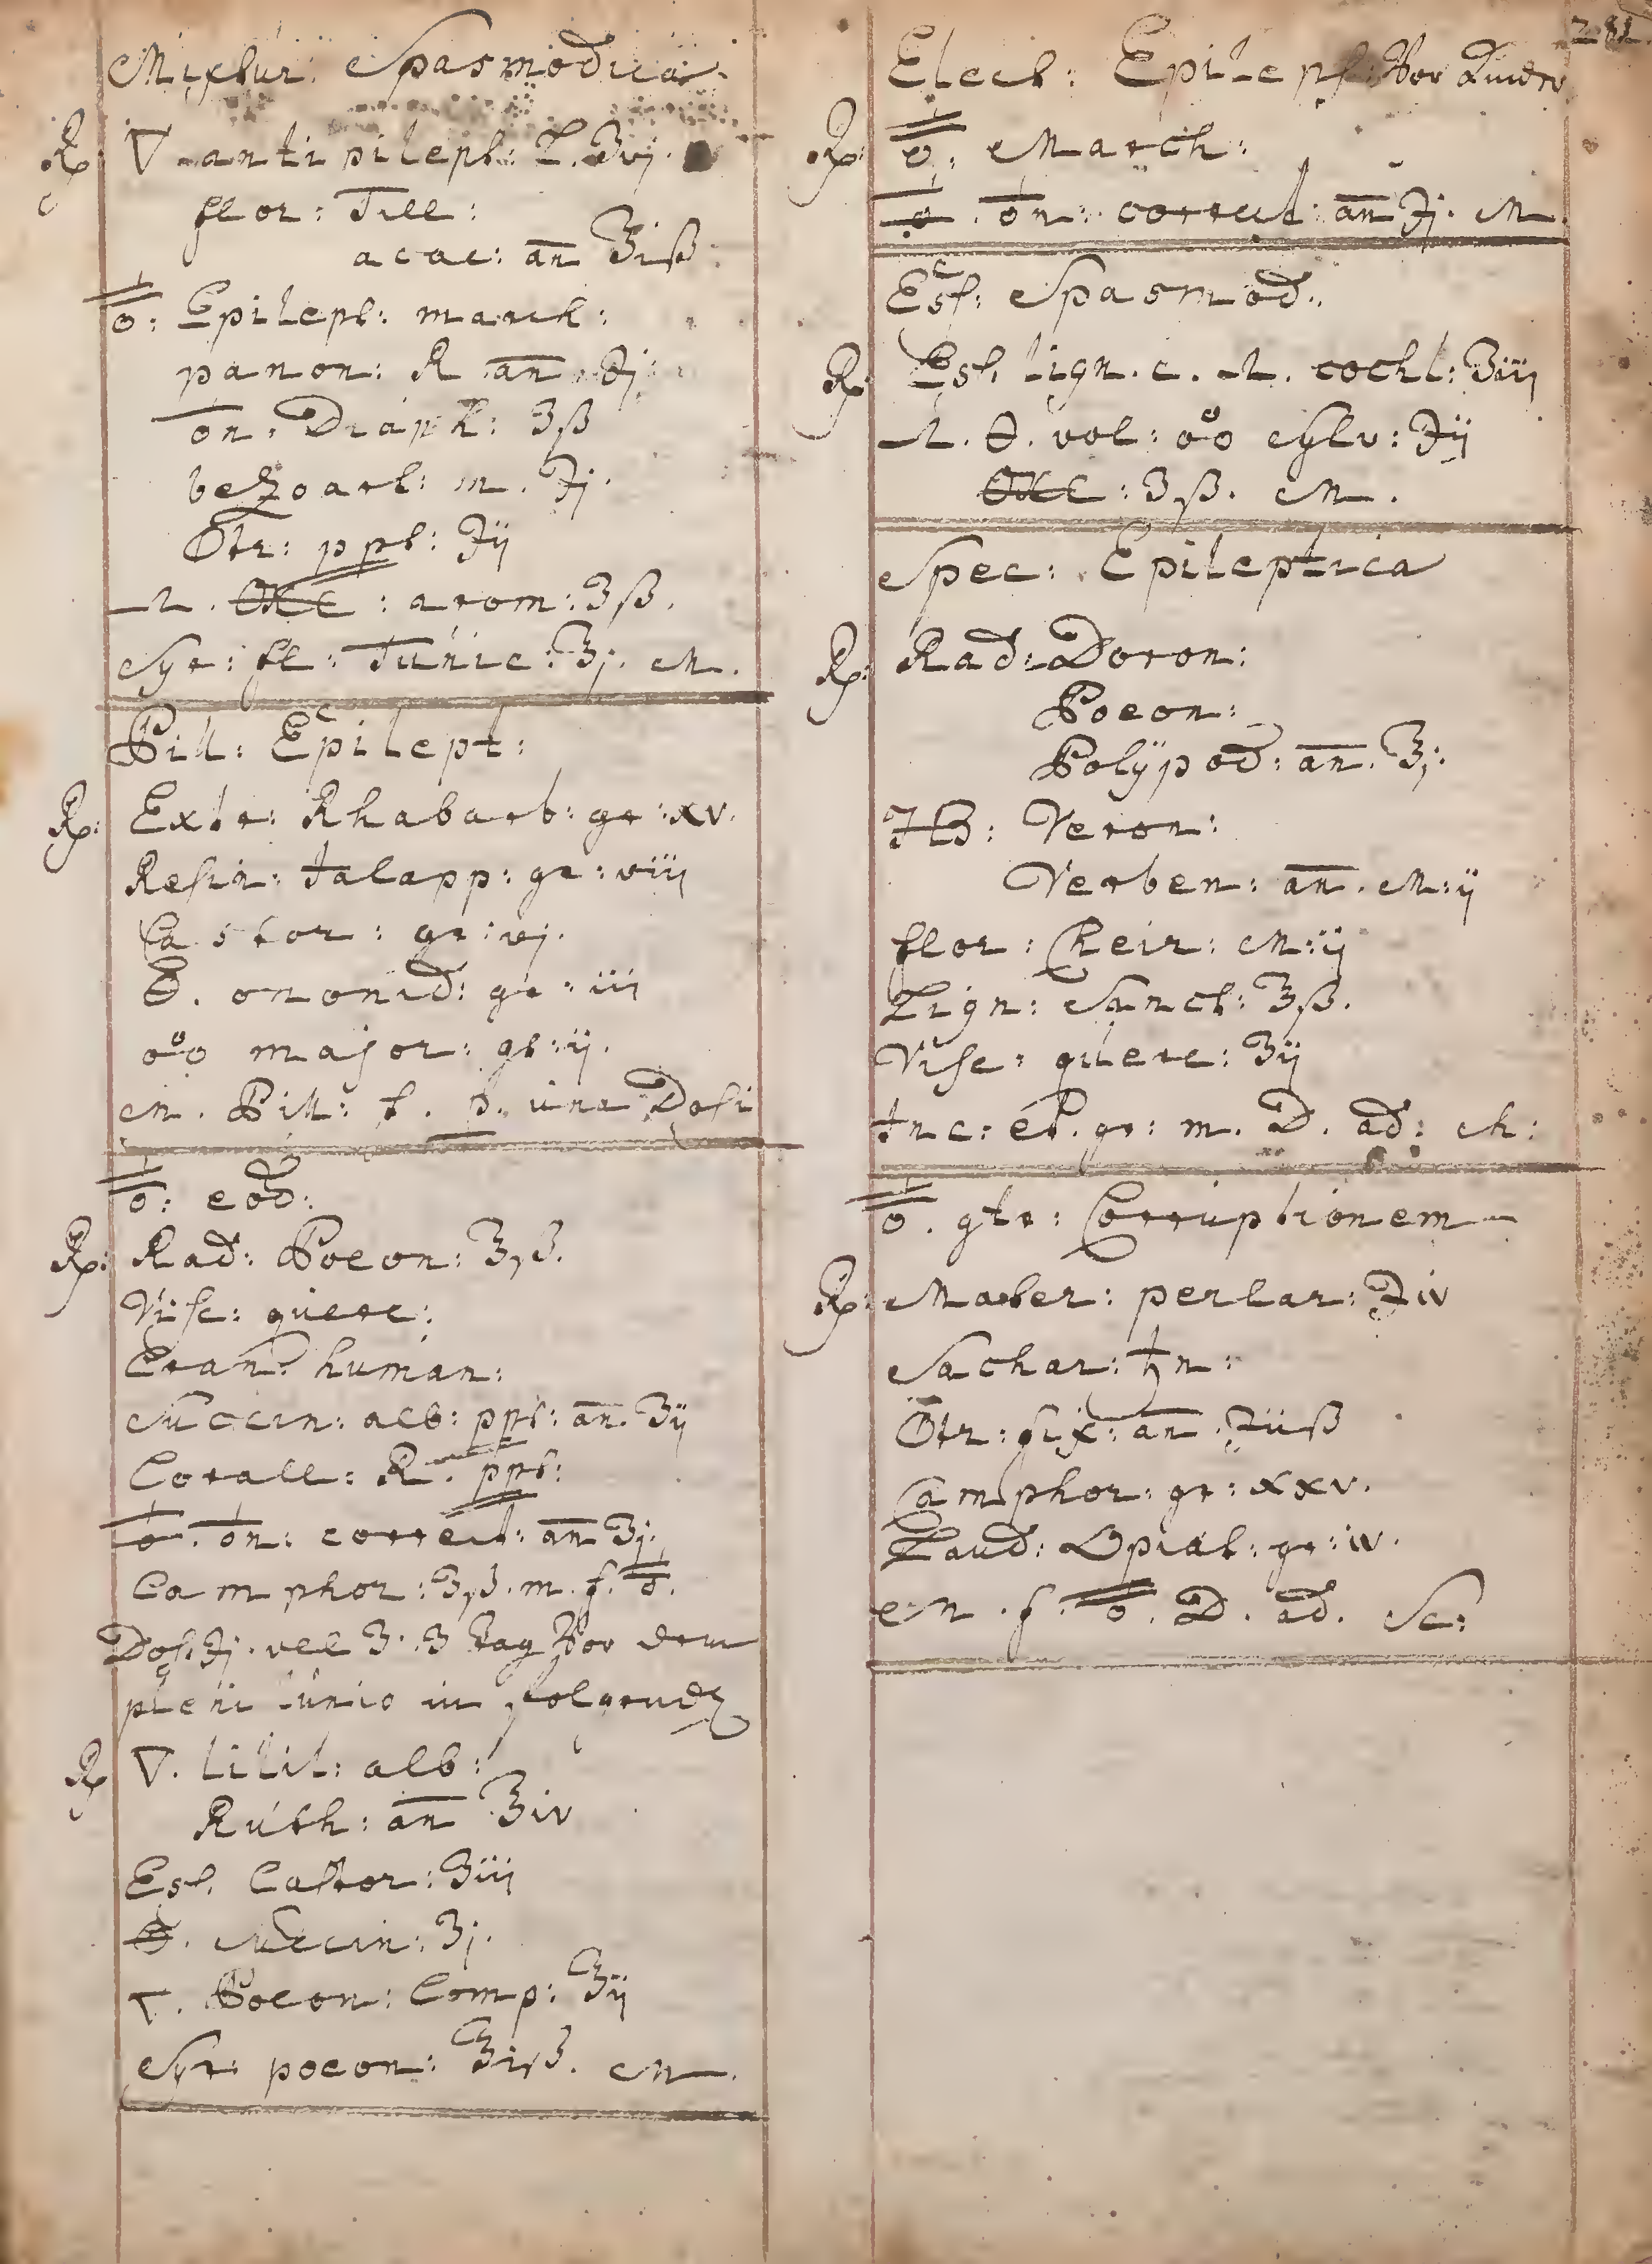 Mixtur: Spasmodica.
℞ 🜄 antipilept: L. ʒvj.
flor: Till:
acac: an̅ ʒiß:
Epilept: march:
panon: R an̅ ℈j:
on. Diaph: ʒß
bezoart: m. ℈j.
🜕tr: ppt: ℈ij
C C : arom: ʒß.
Syr: fl: Tunic: ʒj. M.
Pill: Epilept:
℞: Extr: Rhabarb: gr: xv.
Resin: Jalapp: gr: viij
Castor: gr: vj.
. ononid: gr: iij
major: gt: ij.
M. Pill: f. p. una Dosi
eod:
℞: Rad: Poeon: ʒß.
Visc: querc:
Cran: human:
Succin: alb: ppt: an. ʒij
Corall: R. ppt:
on: correct: an̅ ʒj.
Camphor: ʒß. m. f.
Dos. ℈j. vel ʒ. 3 tag vor dem
plenilunio in folgend
℞ 🜄. Lilil: alb:
Ruth: an̅ ʒiv
Ess. Castor: ʒiij
. Succin: ʒj.
. Poeon: Comp: ʒij
Syr: poeon: ʒiß. M.
281
Elect: Epilept: vor Kinder
℞: March:
on: correct: an̅ ℈j. M.
Ess: Spasmod:
℞: Ess. lign. c. cochl: ʒiij
. vol: Sylv: ℈ij
C C : ʒß. M.
Spec: Epileptica
℞: Rad: Doron:
Poeon:
Polÿpod: an̅. ʒj.
HB: Veron:
Verben: an̅. M: ij
flor: Cheir: M: ij
Lign: Sanct: ʒß.
Visc: querc: ʒij
Inc: et. gr: m. D. ad: ch:
. gtr: Corruptionem
℞: Mater: perlar: ℈iv
Sachar: ♄n:
🜕tr: fix: an̅ ℈iiß
Camphor: gr: xxv.
Laud: Opiat: gr: iv.
M. f. D. ad. Sc: